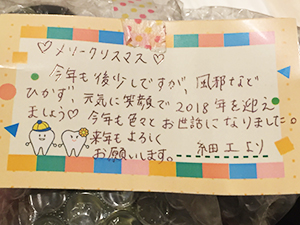 ♡メリークリスマス♡
今年も後少しですが、風邪など
ひかず、元気に笑顔で2018年を迎え
ましょう♡ 今年も色々とお世話になりました。
来年もよろしく
お願いします。
細工より